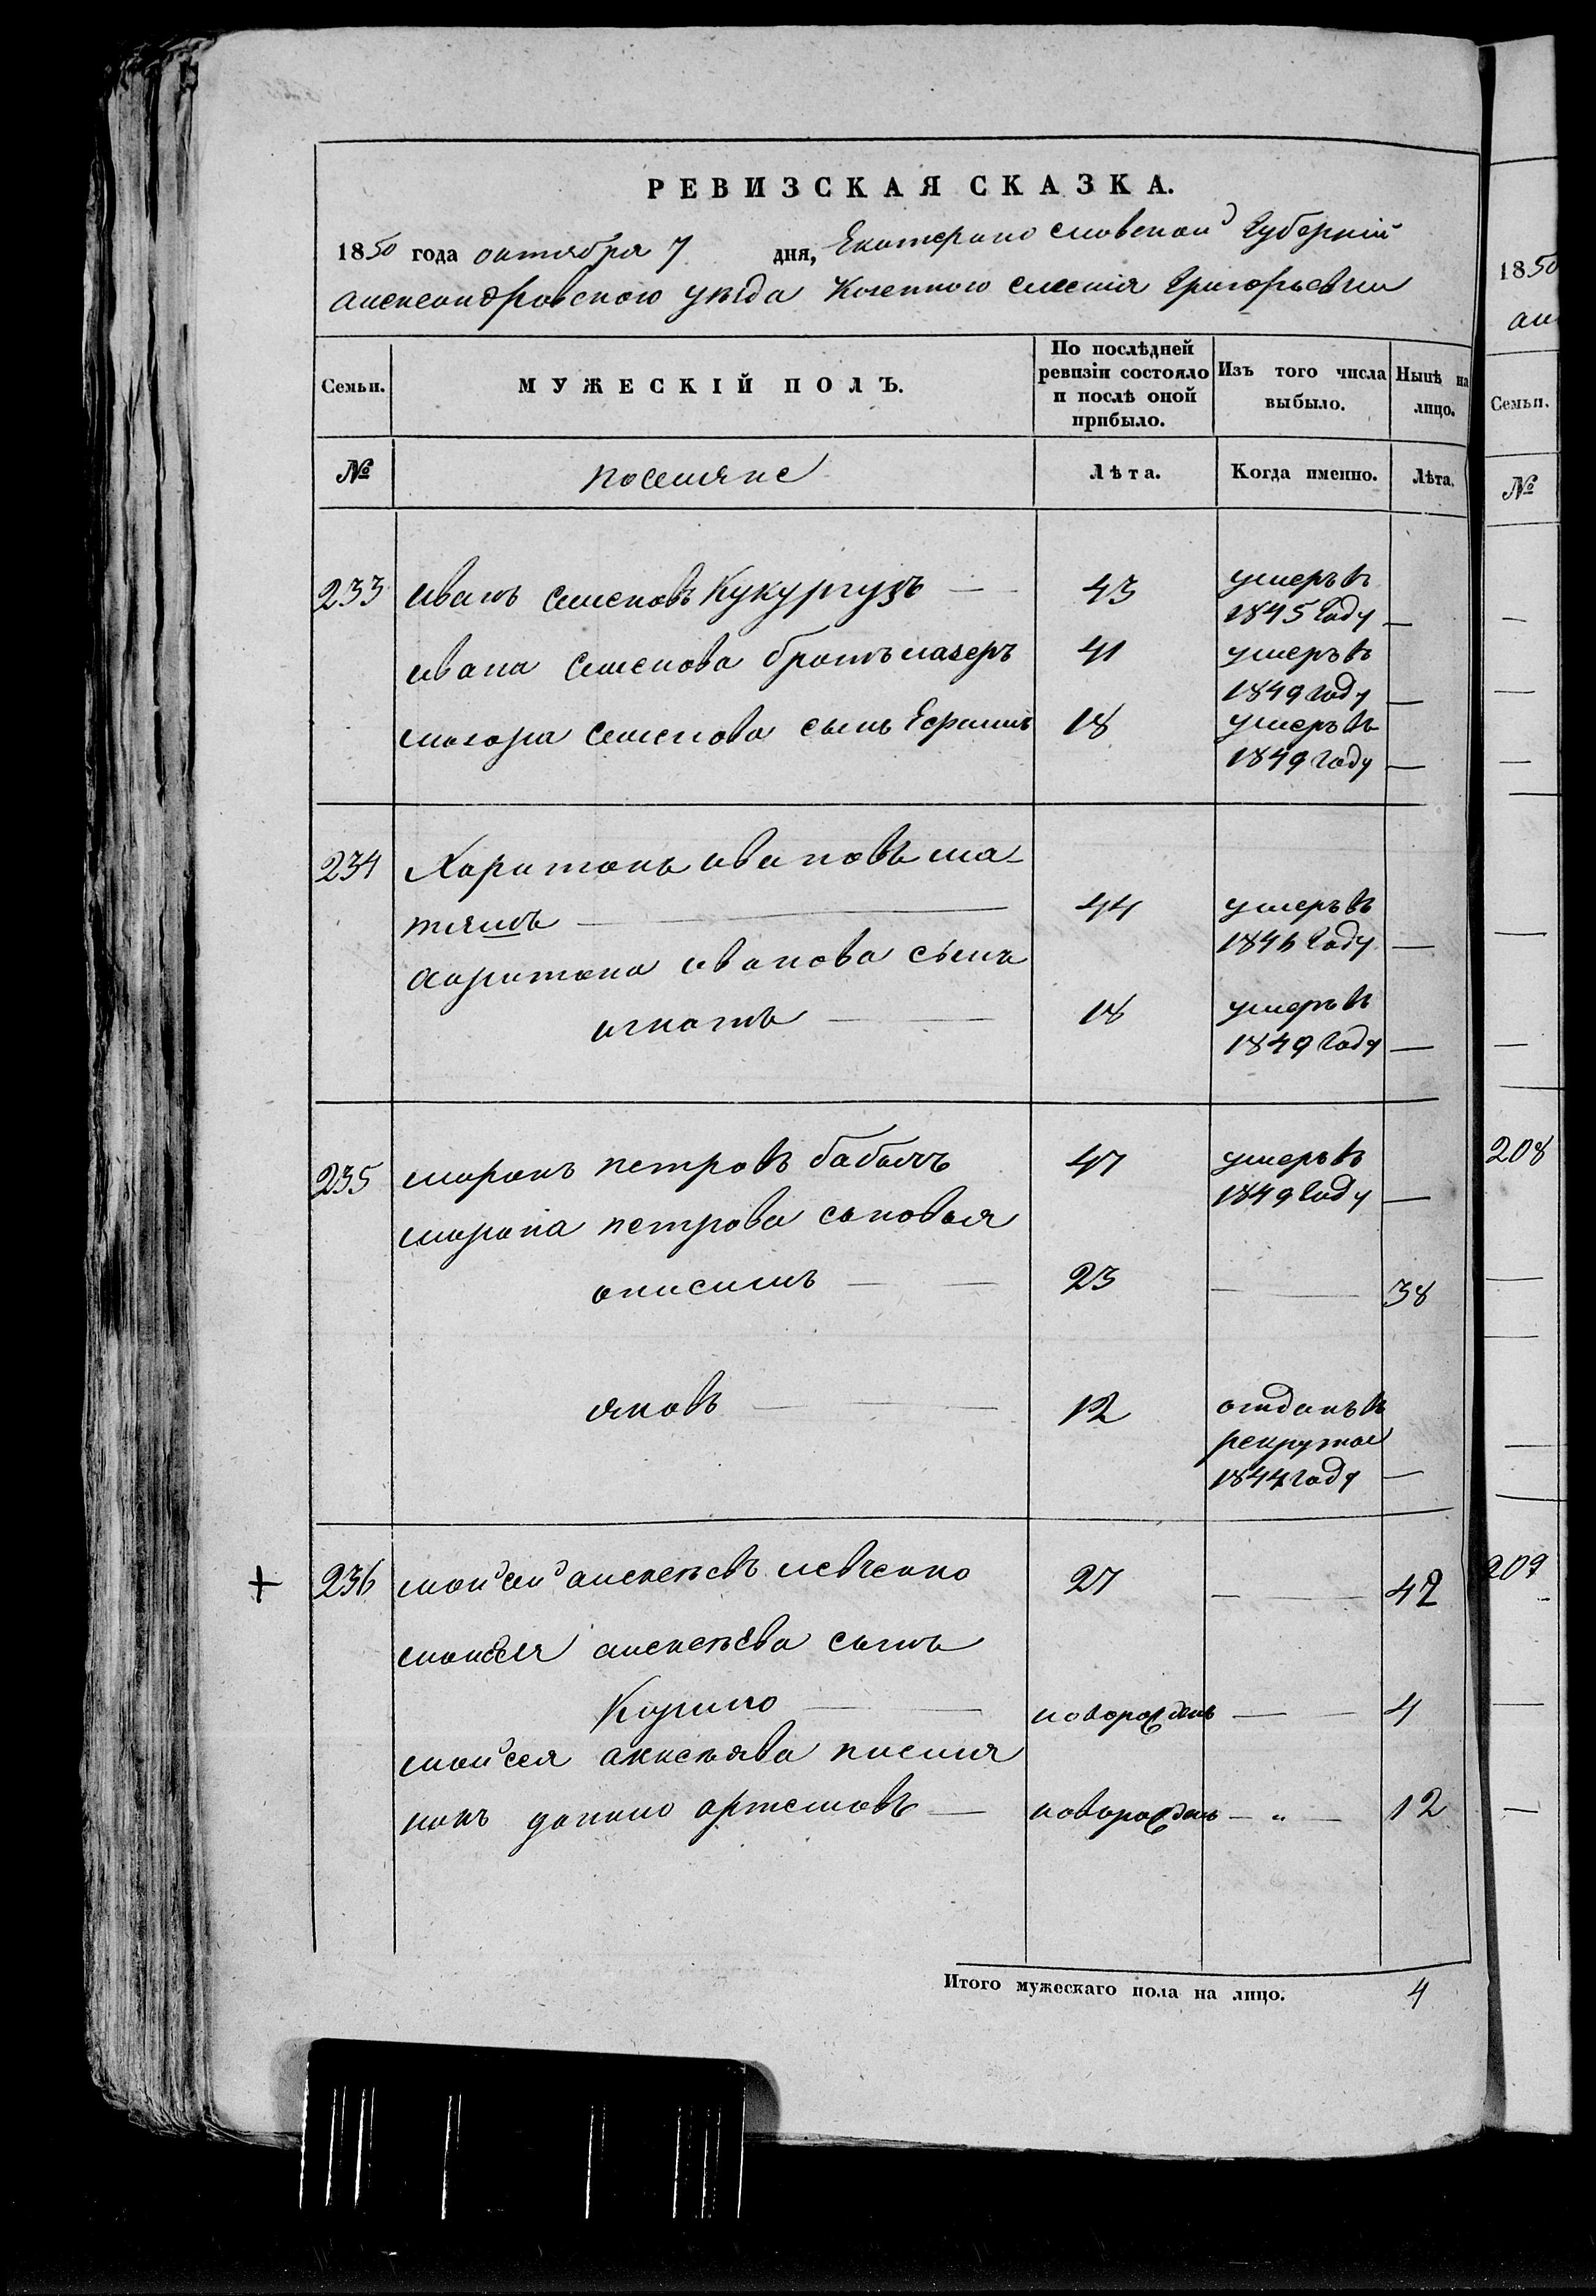 РЕВИЗСКАЯ СКАЗКА.
1850 года октября 7 дня, Екатеринославской Губерніи
александровского уѣзда Казенного селенія Григорьевки
Семьи. МУЖЕСКІЙ ПОЛЪ. По послѣдней ревизіи состояло и послѣ оной прибыло. Изъ того числа выбыло. Нынѣ на лицо.
№ поселяне Лѣта. Когда именно. Лѣта.
233 иванъ семеновъ Кукургузъ — 43 умеръ въ
1845 Году —
ивана семенова братъ лазеръ 41 умеръ въ
1849 году —
семенова сынъ Ефимъ 18 умеръ въ
1849 году —
234 Харитонъ ивановъ ма-
44 умеръ въ
1846 Году —
харитона иванова сынъ
игнатъ — 18 умеръ въ
1849 Году —
235 миронъ петровъ 47 умеръ въ
1849 Году —
мирона петрова сыновья
онисимъ — 23 — 38
яковъ — 12 отданъ въ
рекруты
1844 году —
+ 236 мойсей алексѣевъ левченко 27 — 42
мойсея алексѣева сынъ
Кирило — новорожденъ — 4
мойсея алексѣева племя
никъ данило артемовъ — новорожденъ — „ — 12
Итого мужескаго пола на лицо. 4
1850
ал
Семьи.
№
208
209